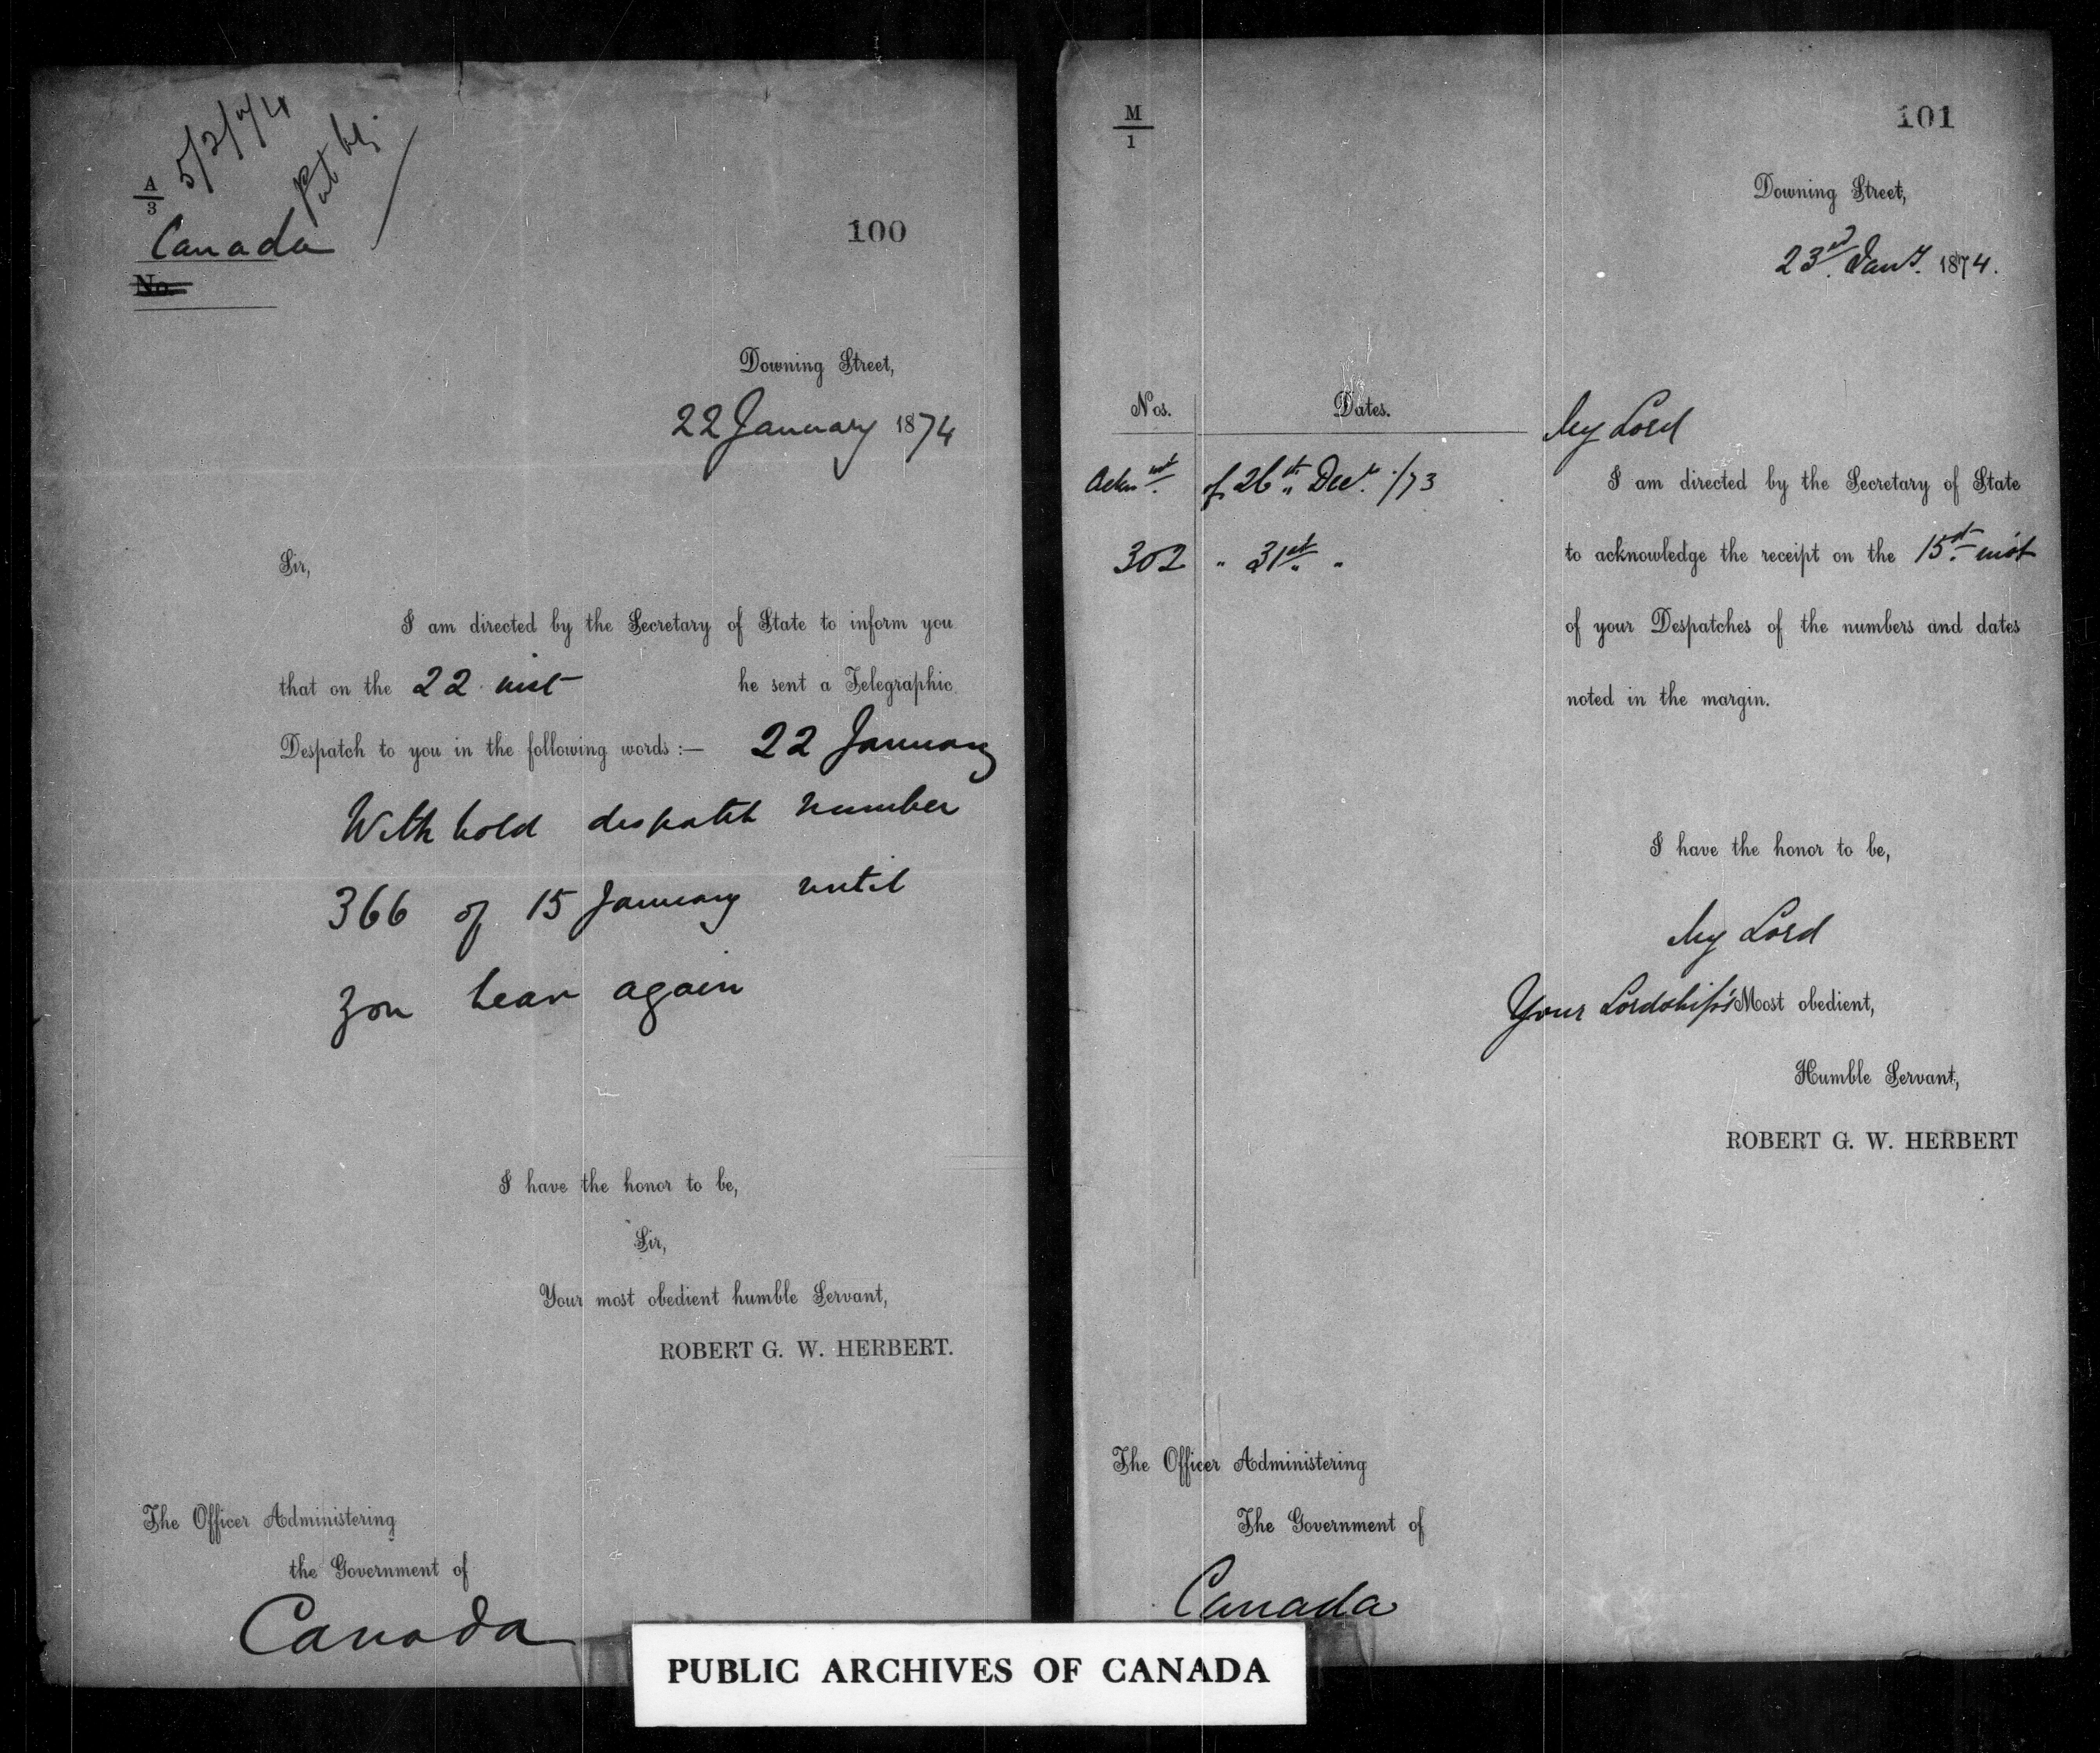 5/2/74
A
3
Canada
No.
100
Downing Street,
22 January 1874
Sir,
I am directed by the Secretary of State to inform you
that on the 22 inst he sent a Telegraphic
Despatch to you in the following words :— 22 January
Withhold despatch number
366 of 15 January until
you hear again
I have the honor to be,
Sir,
Your most obedient humble Servant,
ROBERT G. W. HERBERT.
The Officer Administering
the Government of
Canada
M
1
101
Downing Street,
23rd Jany. 1874.
Nos. Dates.
Acknt. of 26th Decr. /73
302 " 31st "
My Lord
I am directed by the Secretary of State
to acknowledge the receipt on the 15th inst
of your Despatches of the numbers and dates
noted in the margin.
I have the honor to be,
My Lord
Your Lordship's Most obedient,
Humble Servant,
ROBERT G. W. HERBERT
The Officer Administering
The Government of
Canada
PUBLIC ARCHIVES OF CANADA